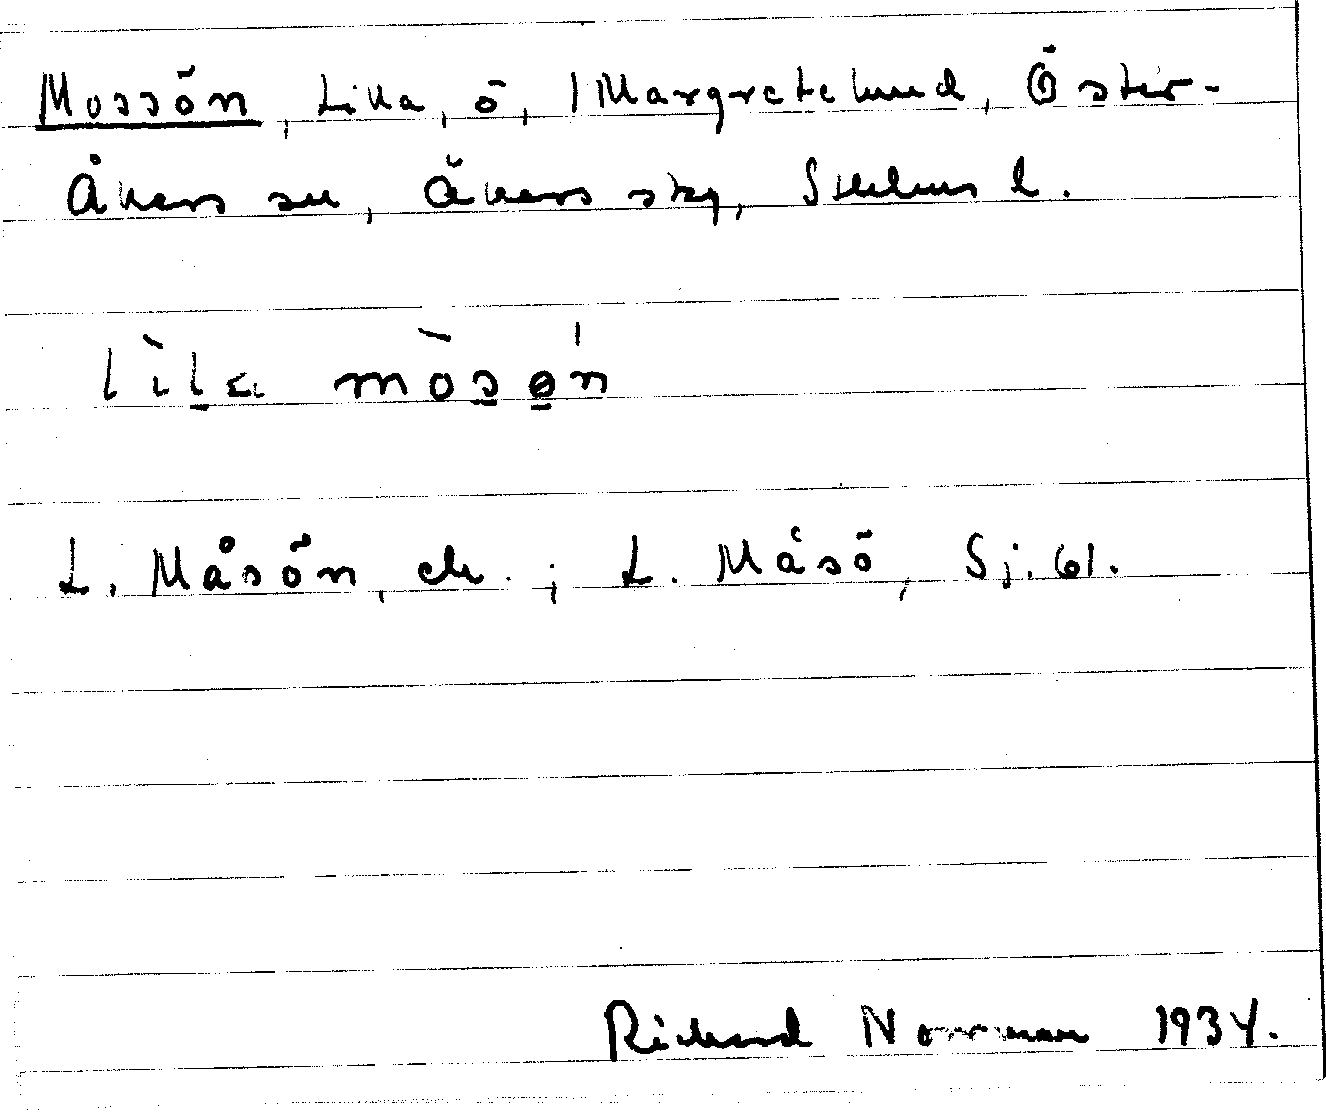 Mossön, Lilla, ö, Margretelund, Öster-
Åkers sn, Åkers skg, Sthlms l.
lìl̠a mòs̠ø̠ń
L. Måsön, ek. ; L. Måsö, Sj. 61.
Rickard Norrman 1934.